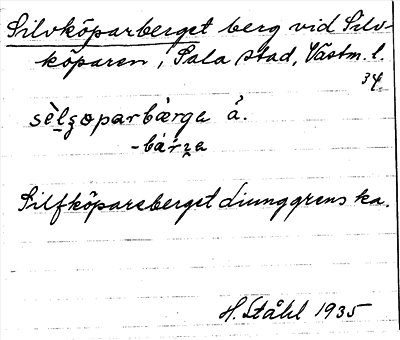 Silvköparberget berg vid Silv-
köparen, Sala stad, Västm. l.
34
sèlʒoparbærga å.
-bárʒa
Silfköpareberget Ljunggrens ka.
H. Ståhl 1935